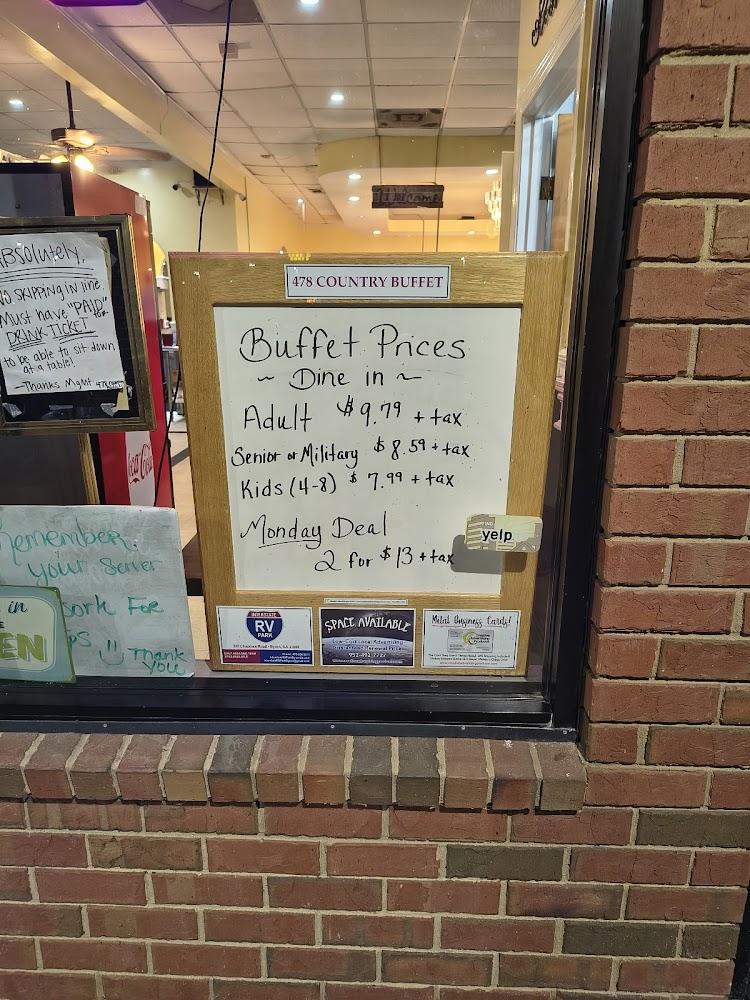 Welcome
ABSOLUTELY,
NO SKIPPING IN line
MUST have "PAID" for
DRINK TICKET
to be able to sit down
at a table!
-Thanks Mgmt
478 COUNTRY BUFFET
Buffet Prices
~ Dine in ~
Adult $9.79 + tax
Senior or Military $8.59 + tax
Kids (4-8) $7.99 + tax
Monday Deal
2 for $13 + tax
yelp
Coca-Cola
Remember
your Server
work For
ps !! Thank
You
in
EN
INTERSTATE
RV
PARK
SPACE AVAILABLE
Low Cost Local Advertising
952-492-7727
Metal Business Cards!